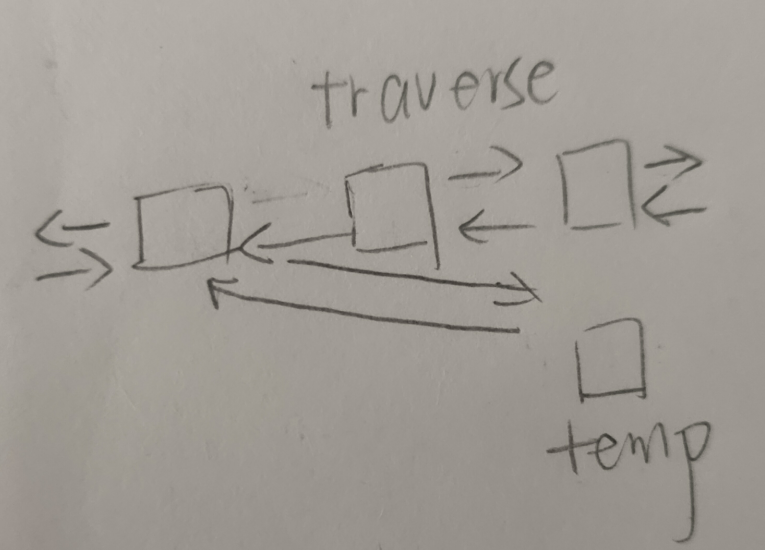 traverse
temp